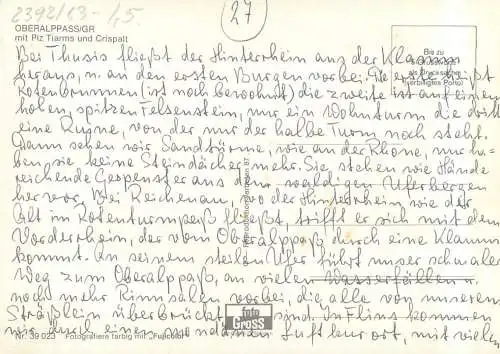 2392/23- -,5.
27
OBERALPPASS/GR
mit Piz Tiarms und Crispalt
Bis zu
als Drucksache
verbilligtes Porto
Bei Thusis fließt der Hinterrhein aus der Klamm
heraus, u. an den ersten Burgen vorbei. Die erste heißt
Rotenbrunnen (ist noch bewohnt) die zweite ist auf einem
hohen, spitzen Felsenstein, nur ein Wohnturm die dritt
eine Ruine, von der nur der halbe Turm noch steht.
Dann sehen wir Sandtürme, wie an der Rhone, nur ha-
ben sie keine Steindächer mehr. Sie stehen wie Hände
reichende Gespenster aus den waldigen Uferbergen
hervor. Bei Reichenau, wo der Hinterrhein wie der
fließt, trifft er sich mit dem
Vorderrhein, der vom Oberalppaß durch eine Klamm
kommt. An seinem steilen Ufer führt unser schmaler
Weg zum Oberalppaß, an vielen Wasserfällen u.
noch mehr Rinnsalen vorbei, die alle von unserem
Sträßlein überbrückt sind. In Flims kommen
wir durch einen mondänen Luftkurort, mit vielen
foto
GROSS
Nr. 39 023 Fotografiere farbig mit "Fujicolor"